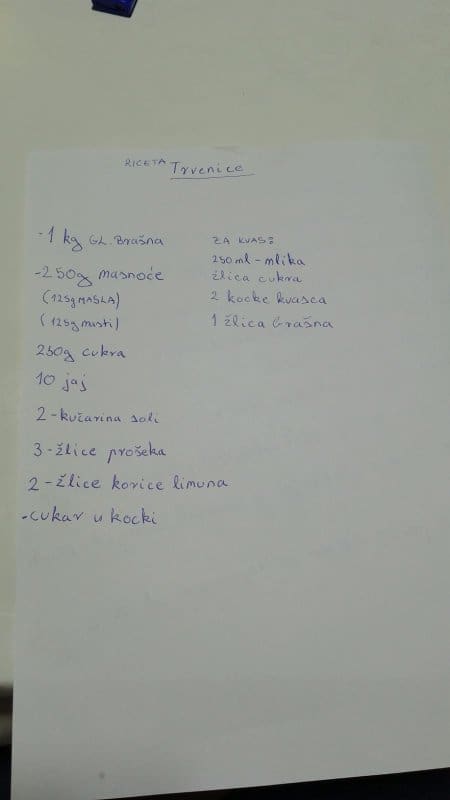 RICETA Trvenice
-1 kg GL. Brašna
-250g masnoće
(125g MASLA)
(125g masti)
250g cukra
10 jaj
2-kučarina soli
3-žlice prošeka
2-žlice korice limuna
-cukar u kocki
ZA KVAS:
250ml-mlika
žlica cukra
2 kocke kvasca
1 žlica brašna